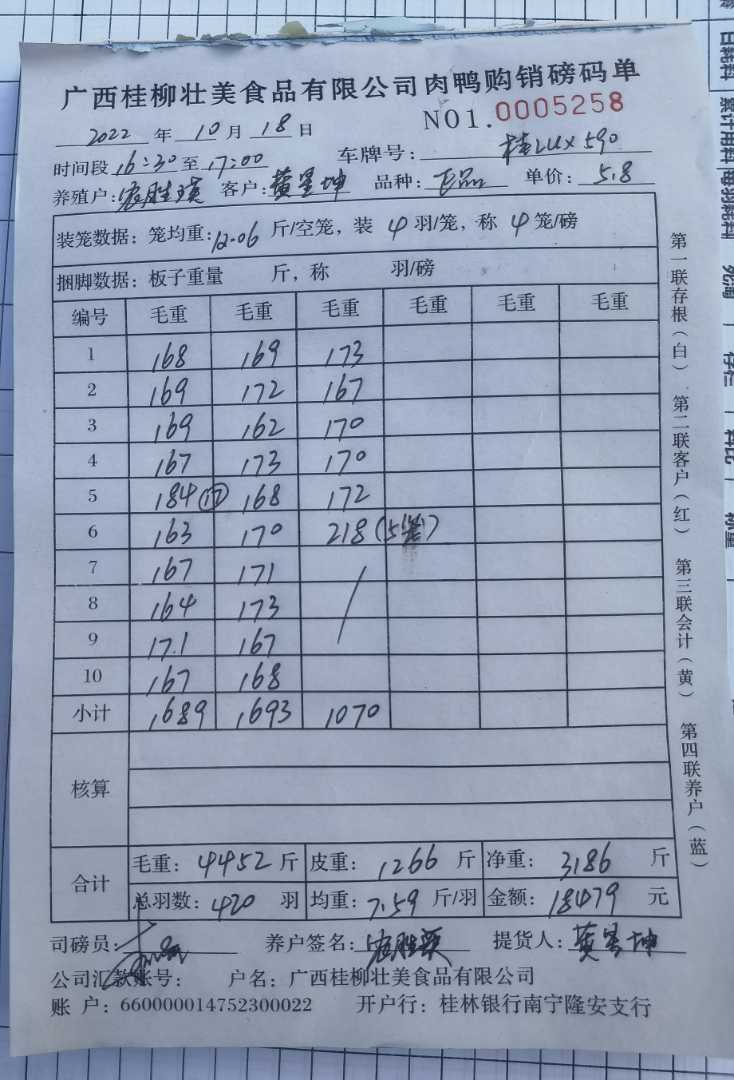 广西桂柳壮美食品有限公司肉鸭购销磅码单
NO1.0005258
2022 年 10 月 18 日
时间段 16:30 至 17:00 车牌号: 590
养殖户: 客户: 黄星坤 品种: 正品 单价: 5.8
装笼数据: 笼均重: 12.06 斤/空笼, 装 4 羽/笼, 称 4 笼/磅
捆脚数据: 板子重量 斤, 称 羽/磅
编号 毛重 毛重 毛重 毛重 毛重 毛重
1 168 169 173
2 169 172 167
3 169 162 170
4 167 173 170
5 184 (17) 168 172
6 163 170 218 (5笼)
7 167 171
8 164 173
9 17.1 167
10 167 168
小计 1689 1693 1070
核算
合计
毛重: 4452 斤 皮重: 1266 斤 净重: 3186 斤
总羽数: 420 羽 均重: 7.59 斤/羽 金额: 18479 元
司磅员: 养户签名: 提货人: 黄星坤
公司汇款账号: 户名: 广西桂柳壮美食品有限公司
账 户: 660000014752300022 开户行: 桂林银行南宁隆安支行
第一联存根(白) 第二联客户(红) 第三联会计(黄) 第四联养户(蓝)
日耗料
累计用料
每羽耗料
存栏
料比